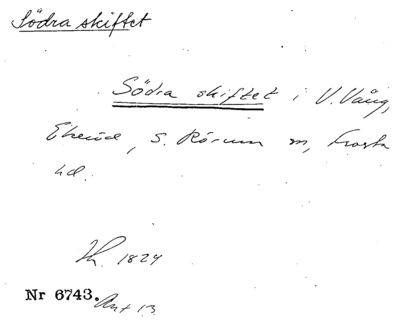 Södra skiftet
Södra skiftet i V. Vång,
Ekeröd, S. Rörum sn, Frosta
hd.
1824
Nr 6743.